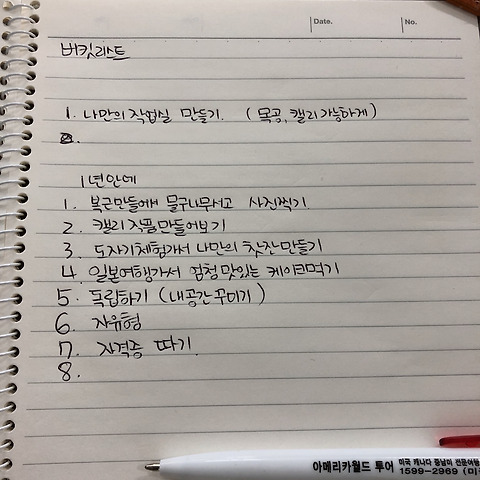 Date.
No.
버킷리스트
1. 나만의 작업실 만들기. (목공, 캘리 가능하게)
2.
1년안에
1. 복근만들어서 물구나무서고 사진찍기.
2. 캘리 작품만들어보기
3. 도자기체험가서 나만의 찻잔만들기
4. 일본여행가서 엄청맛있는 케이크먹기
5. 독립하기 (내공간 꾸미기)
6. 자유형
7. 자격증 따기.
8.
아메리카월드 투어 미국 캐나다 중남미 전문여행
1599-2969 (미